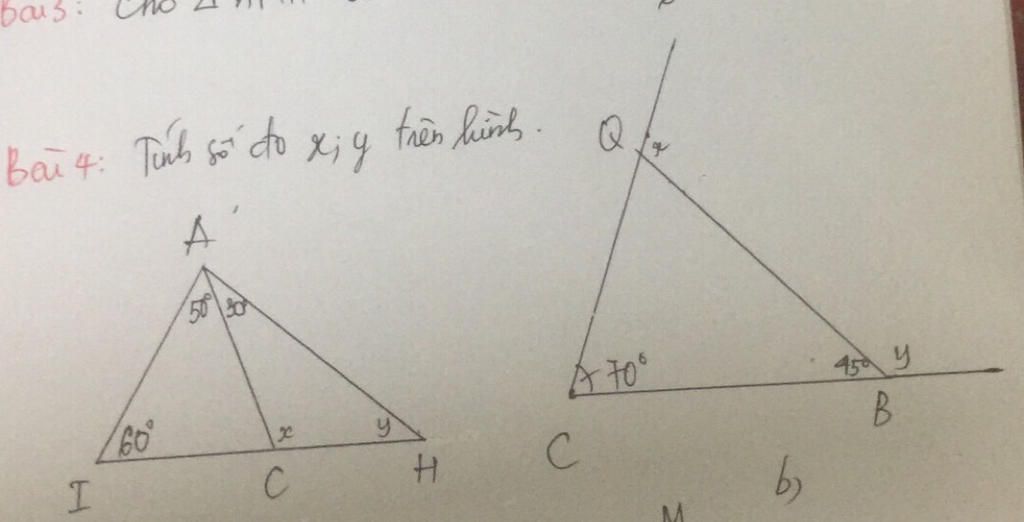 Bài 3: Cho Δ
Bài 4: Tính số đo x; y trên hình.
Q x
A
50° 30°
60° x y
I C H
70° 45° y
C B
b)
M